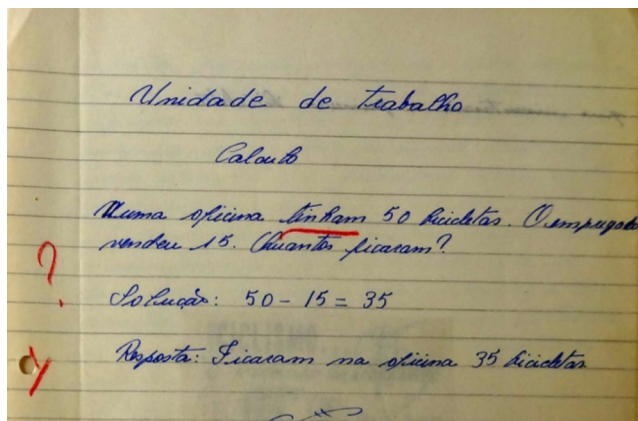 Unidade de trabalho
Calculo
Numa oficina tinham 50 bicicletas. O empregado
vendeu 15. Quantas ficaram?
Solução: 50 - 15 = 35
Resposta: Ficaram na oficina 35 bicicletas